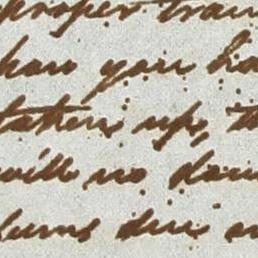 proper tran
han you ha
taken up, t
will no dou
sums due